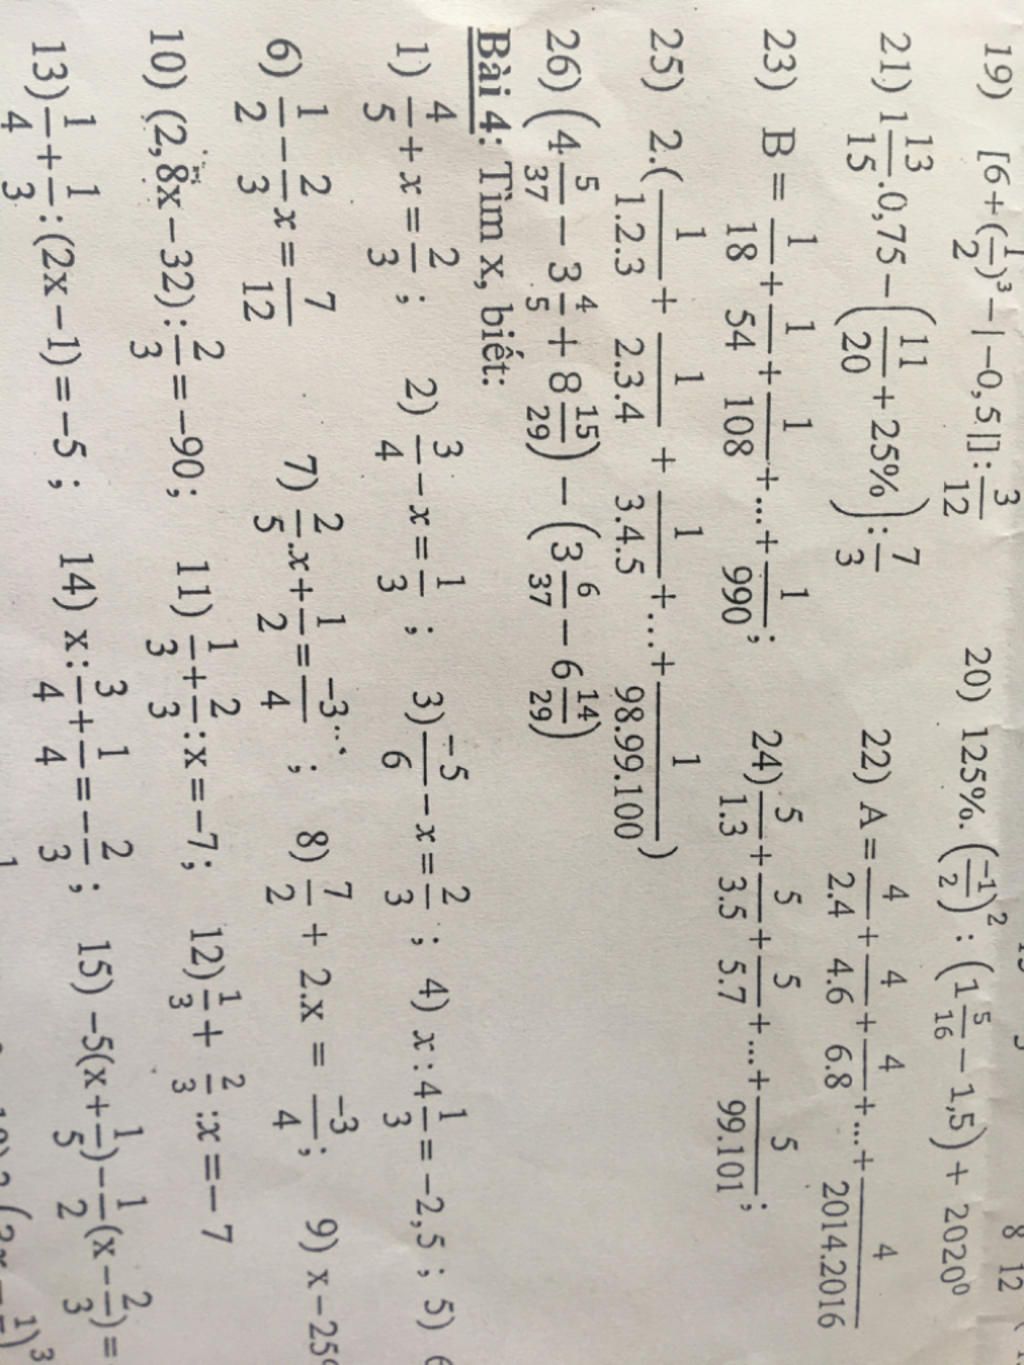 8 12
19) [6+(1/2)³−|−0,5|]:3/12 20) 125%.(−1/2)²:(1 5/16−1,5)+2020⁰
21) 1 13/15.0,75−(11/20+25%):7/3 22) A=4/2.4+4/4.6+4/6.8+...+4/2014.2016
23) B=1/18+1/54+1/108+...+1/990; 24) 5/1.3+5/3.5+5/5.7+...+5/99.101;
25) 2.(1/1.2.3+1/2.3.4+1/3.4.5+...+1/98.99.100)
26) (4 5/37−3 4/5+8 15/29)−(3 6/37−6 14/29)
Bài 4: Tìm x, biết:
1) 4/5+x=2/3; 2) 3/4−x=1/3; 3) −5/6−x=2/3; 4) x:4 1/3=−2,5; 5)
6) 1/2−2/3x=7/12 7) 2/5.x+1/2=−3/4; 8) 7/2+2.x=−3/4; 9) x−25
10) (2,8x−32):2/3=−90; 11) 1/3+2/3:x=−7; 12) 1/3+2/3:x=−7
13) 1/4+1/3:(2x−1)=−5; 14) x:3/4+1/4=−2/3; 15) −5(x+1/5)−1/2(x−2/3)=